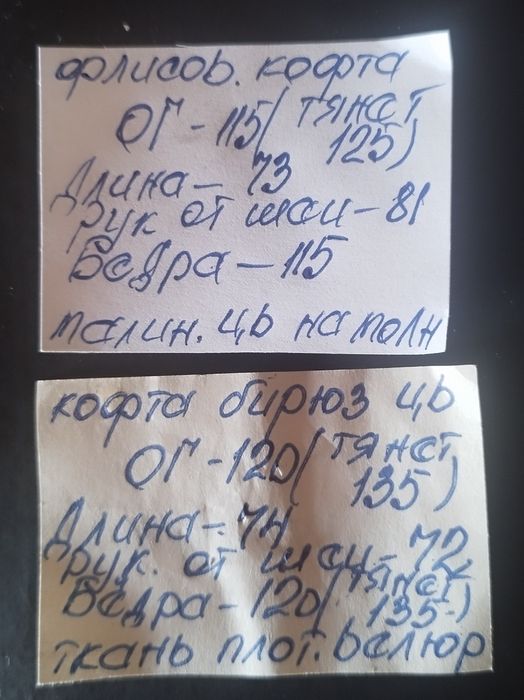 флисов. кофта
ОГ - 115 (тянет
125)
Длина - 73
рук от шеи - 81
Бедра - 115
малин. цв на молн
кофта бирюз цв
ОГ - 120 (тянет
135)
Длина - 74
рук. от шеи - 72
Бедра - 120 (тянет
135)
ткань плот. велюр